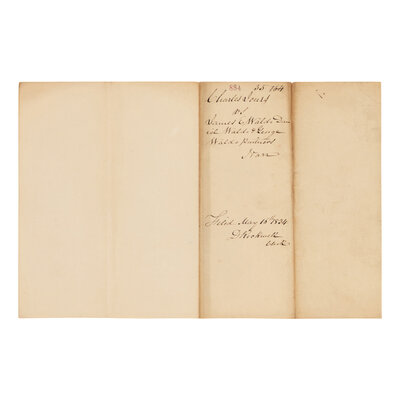 884 55 164
Charles
vs
James C Waldo Dan
iel Waldo & George
Waldo partners
Narr
Filed May 16th 1834
D Rockwell
Clerk